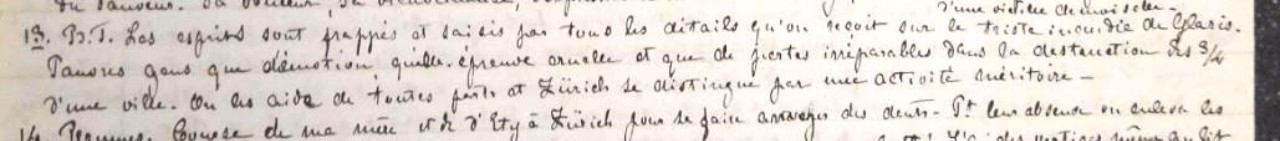 du Sauveur. Sa
d'une vieille demoiselle.
13. B.T. Les esprits sont frappés et saisis par tous les détails qu'on reçoit sur le triste incendie de Glaris.
Pauvres gens que d'émotion, quelle épreuve cruelle et que de pertes irréparables dans la destruction des 3/4
d'une ville. On les aide de toutes parts et Zürich se distingue par une activité méritoire -
14. Course de ma mère et de d'Ety à Zürich pour se faire arranger des dents - Pt leur absence on enleva les
des vertiges même au lit